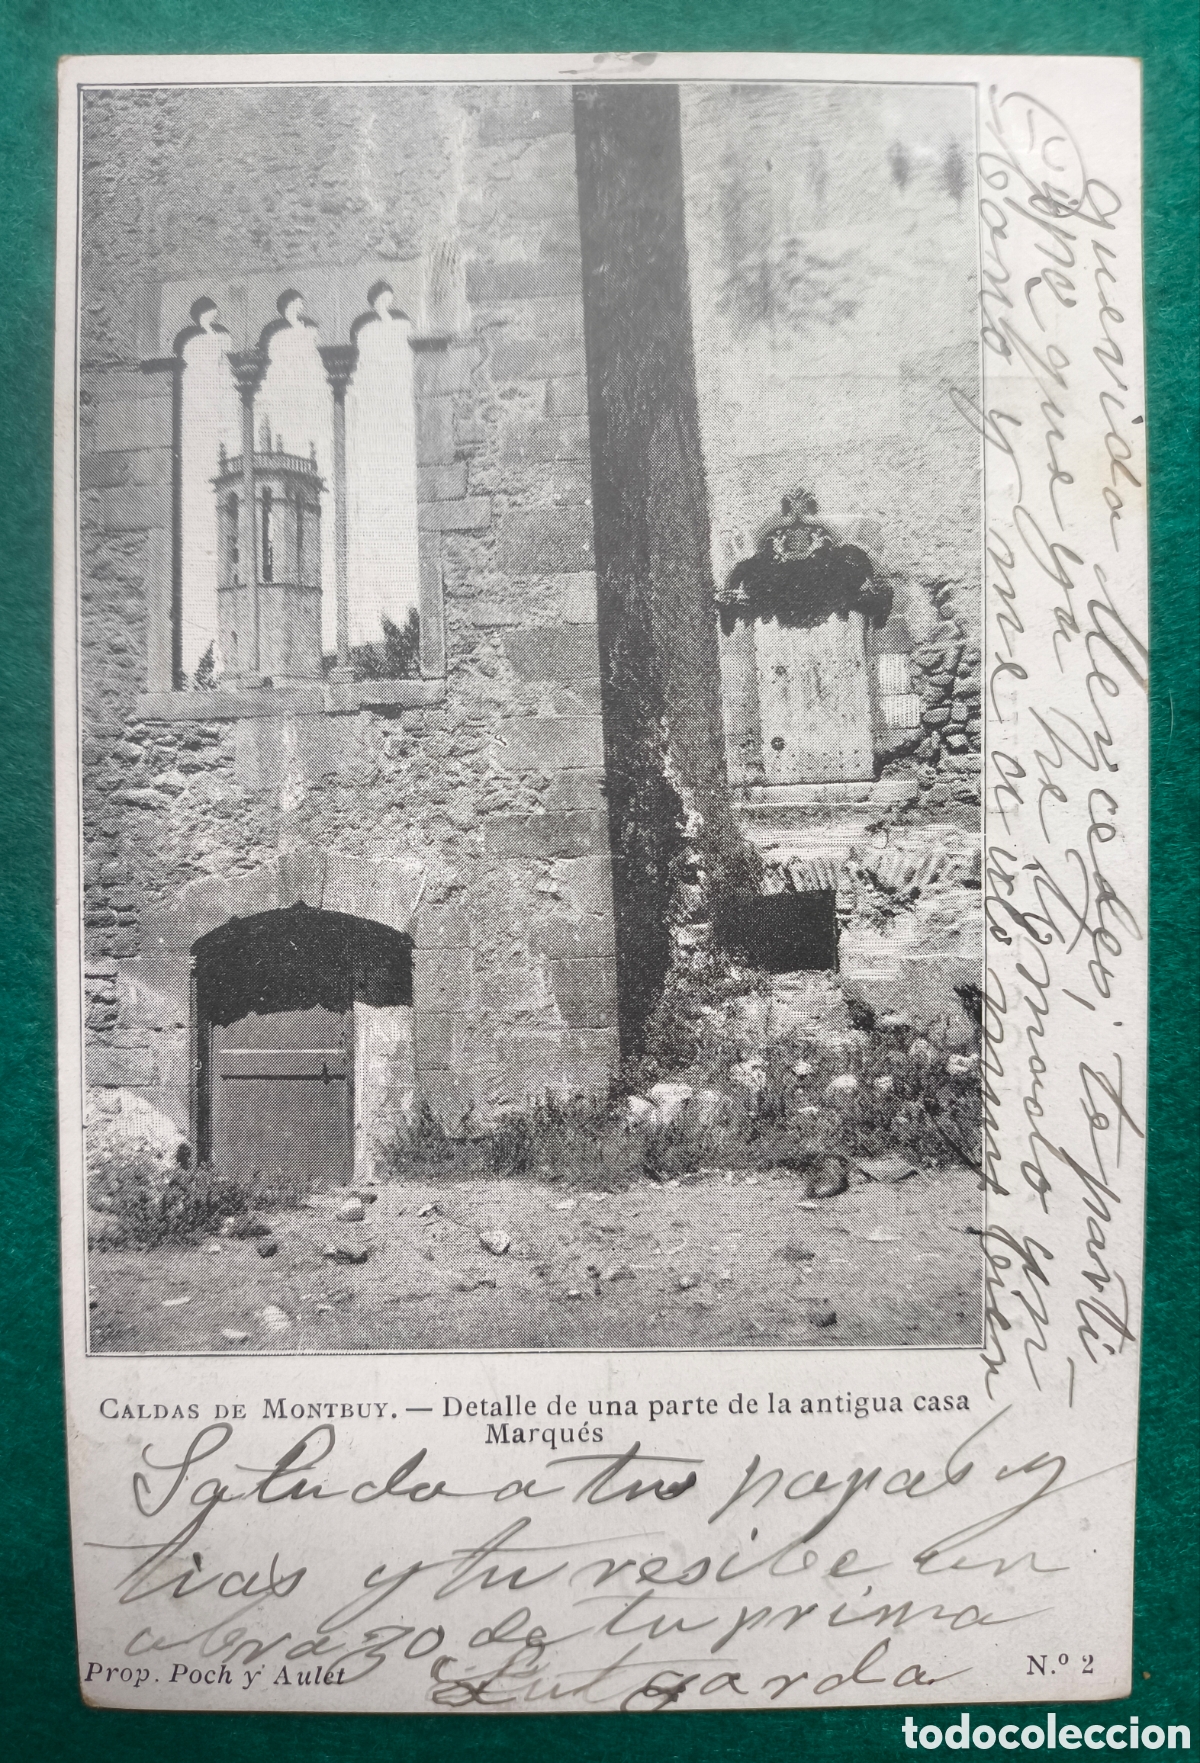 Querida Mercedes; te parti
cipo que ya he tomado un
baño y me a ido muy bien
CALDAS DE MONTBUY. — Detalle de una parte de la antigua casa
Marqués
Saludo a tus papas y
tias y tu resibe un
abrazo de tu prima
Lutgarda
Prop. Poch y Aulet
N.º 2
todocoleccion